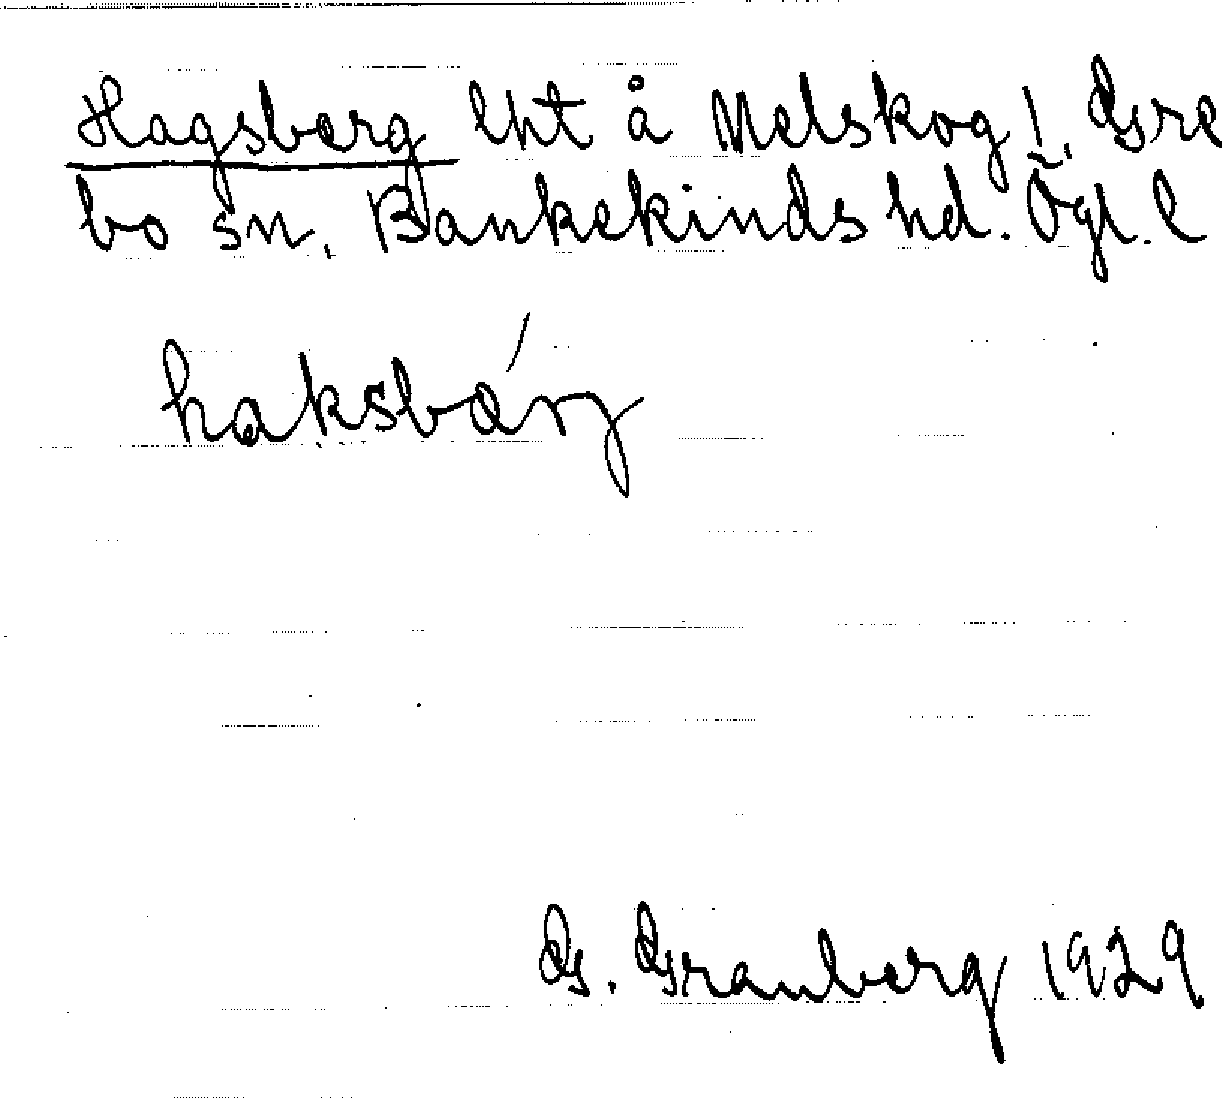 Hagsberg lht å Melskog 1, Gre
bo sn. Bankekinds hd. Ögl. l
haksbárg
G. Granberg 1929